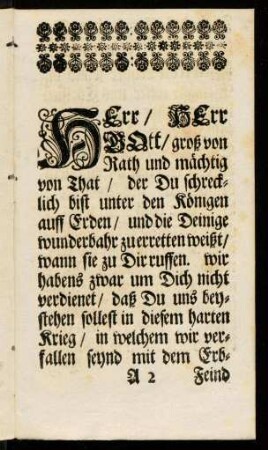 HErr / HErr
GOtt / groß von
Rath und mächtig
von That / der Du schreck-
lich bist unter den Königen
auff Erden / und die Deinige
wunderbahr zu erretten weißt /
wann sie zu Dir ruffen. Wir
habens zwar um Dich nicht
verdienet / daß Du uns bey-
stehen sollest in diesem harten
Krieg / in welchem wir ver-
fallen seynd mit dem Erb-
A 2 Feind